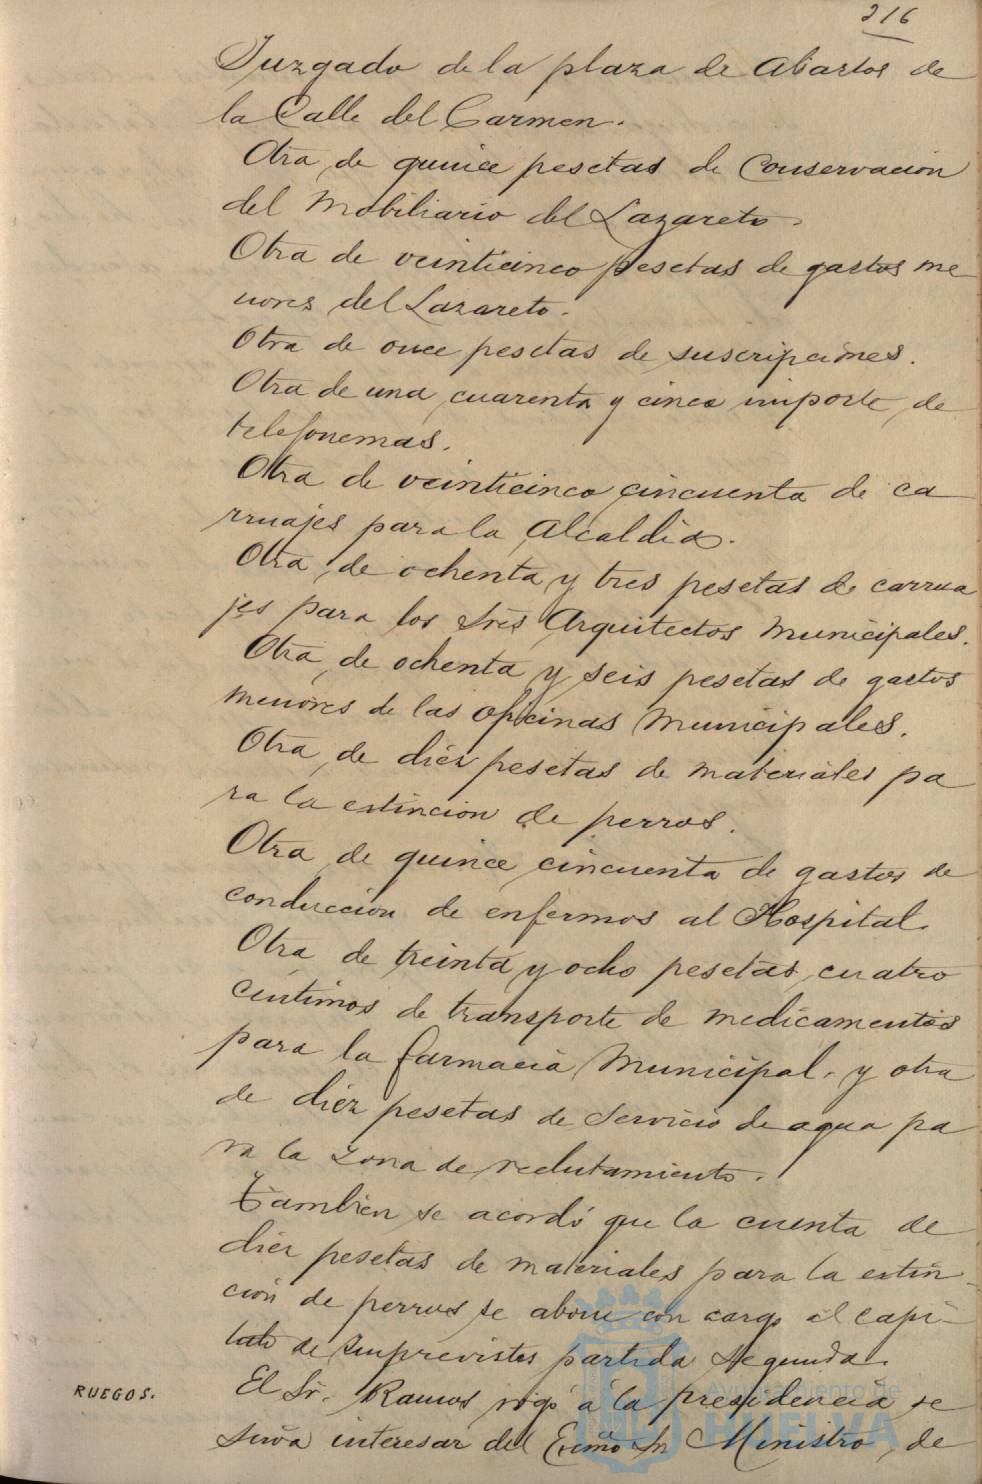 216
Juzgado de la plaza de Abastos de
la Calle del Carmen.
Otra, de quince pesetas de Conservación
del Mobiliario del Lazareto.
Otra de veinticinco pesetas de gastos me
nores del Lazareto.
Otra de once pesetas de suscripciones.
Otra de una cuarenta y cinco importe de
telefonemas.
Otra de veinticinco cincuenta de ca
rruajes para la Alcaldía.
Otra, de ochenta y tres pesetas de carrua
jes para los Sres Arquitectos Municipales.
Otra, de ochenta y seis pesetas de gastos
menores de las oficinas Municipales.
Otra, de diéz pesetas de materiales pa
ra la estinción de perros.
Otra, de quince cincuenta de gastos de
conducción de enfermos al Hospital.
Otra, de treinta y ocho pesetas, cuatro
céntimos de transporte de medicamentos
para la farmacia Municipal. y otra
de diéz pesetas de servicio de agua pa
ra la zona de reclutamiento.
También se acordó que la cuenta de
diéz pesetas de materiales para la estin
ción de perros se abone con cargo al Capí-
tulo de Imprevistos partida segunda.
RUEGOS.
El Sr. Ramos rogó á la presidencia se
sirva interesar del Excmo Sr Ministro, de
Ayuntamiento de
HUELVA